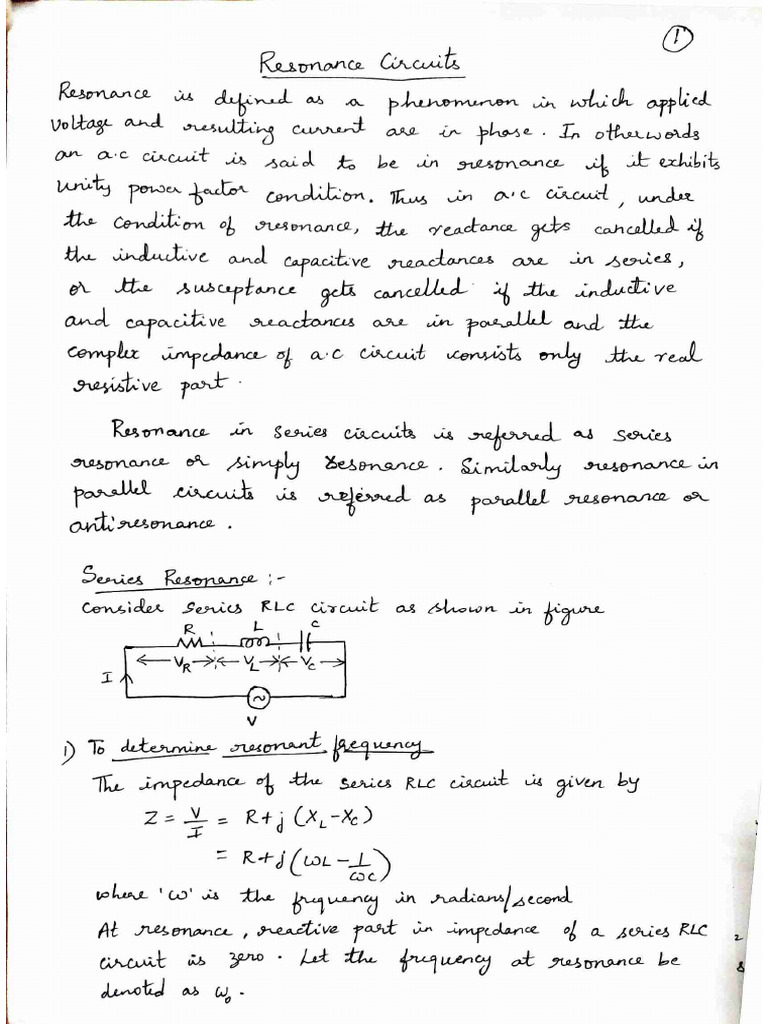 1
Resonance Circuits
Resonance is defined as a phenomenon in which applied
voltage and resulting current are in phase. In otherwords
an a.c circuit is said to be in resonance if it exhibits
unity power factor condition. Thus in a.c circuit, under
the condition of resonance, the reactance gets cancelled if
the inductive and capacitive reactances are in series,
or the susceptance gets cancelled if the inductive
and capacitive reactances are in parallel and the
complex impedance of a.c circuit consists only the real
resistive part.
Resonance in series circuits is referred as series
resonance or simply resonance. Similarly resonance in
parallel circuits is referred as parallel resonance or
antiresonance.
Series Resonance :-
Consider series RLC circuit as shown in figure
R L C
I VR VL VC
V
1) To determine resonant frequency
The impedance of the series RLC circuit is given by
Z = V/I = R+j (XL-XC)
= R+j(ωL - 1/ωC)
where 'ω' is the frequency in radians/second
At resonance, reactive part in impedance of a series RLC
circuit is zero. Let the frequency at resonance be
denoted as ω₀.